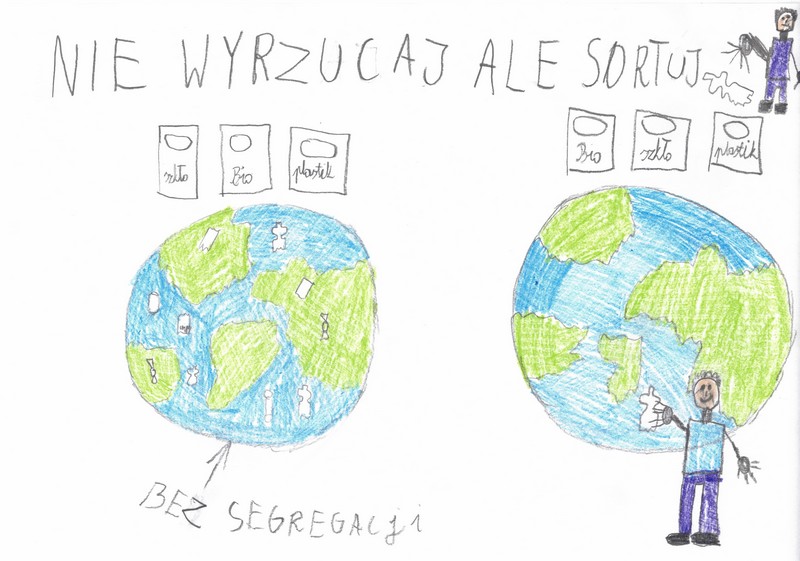 NIE WYRZUCAJ ALE SORTUJ
szkło
Bio
plastik
Bio
szkło
plastik
BEZ SEGREGACji